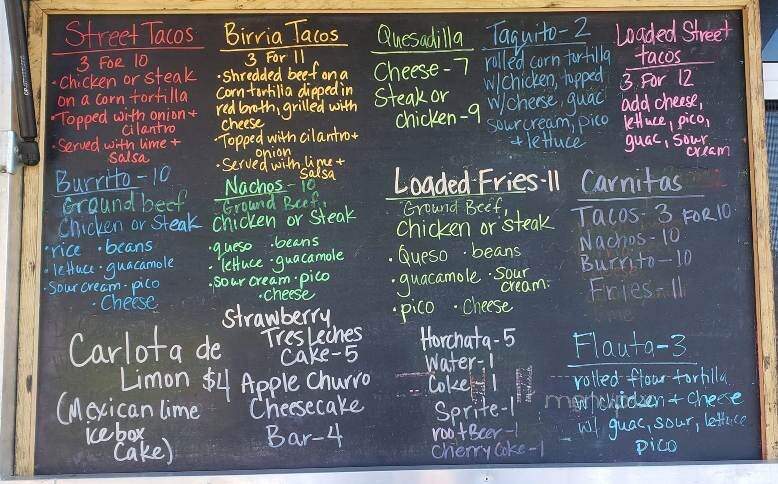 Street Tacos
3 For 10
• Chicken or Steak
on a corn tortilla
• Topped with onion +
cilantro
• Served with lime +
Salsa
Birria Tacos
3 For 11
• shredded beef on a
Corn tortilla dipped in
red broth, grilled with
cheese
• Topped with cilantro +
onion
• Served with lime +
Salsa
Quesadilla
Cheese - 7
Steak or
chicken - 9
Taquito - 2
rolled corn tortilla
w/chicken, topped
w/cheese, guac
sour cream, pico
+ lettuce
Loaded Street
tacos
3 For 12
add cheese,
lettuce, pico,
guac, sour
cream
Burrito - 10
Ground beef
Chicken or Steak
• rice • beans
• lettuce • guacamole
• sour cream • pico
• Cheese
Nachos - 10
Ground Beef,
Chicken or Steak
• queso • beans
• lettuce • guacamole
• sour cream • pico
• cheese
Loaded Fries - 11
Ground Beef,
Chicken or steak
• Queso • beans
• guacamole • sour
cream
• pico • Cheese
Carnitas
Tacos - 3 FOR 10
Nachos - 10
Burrito - 10
Fries - 11
Carlota de
Limon $4
(Mexican lime
icebox
Cake)
Strawberry
Tres Leches
Cake - 5
Apple Churro
Cheesecake
Bar - 4
Horchata - 5
Water - 1
Coke - 1
Sprite - 1
root Beer - 1
Cherry Coke - 1
Flauta - 3
rolled flour tortilla
w/ chicken + cheese
w/ guac, sour, lettuce
pico